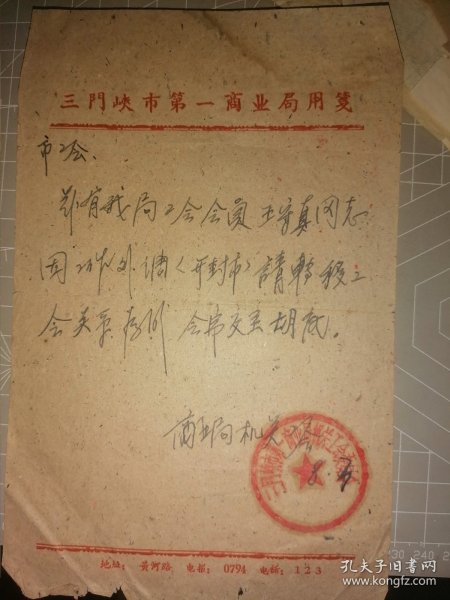 三門峽市第一商业局用箋
市工会.
兹有我局工会会员王守真同志
因工作外调(开封市)請轉移工
会关系为何 会费交至胡底。
商业局机关工会
地址: 黄河路 电报: 0794 电话: 123
30 240 2
孔夫子旧书网
www.kongfz.com